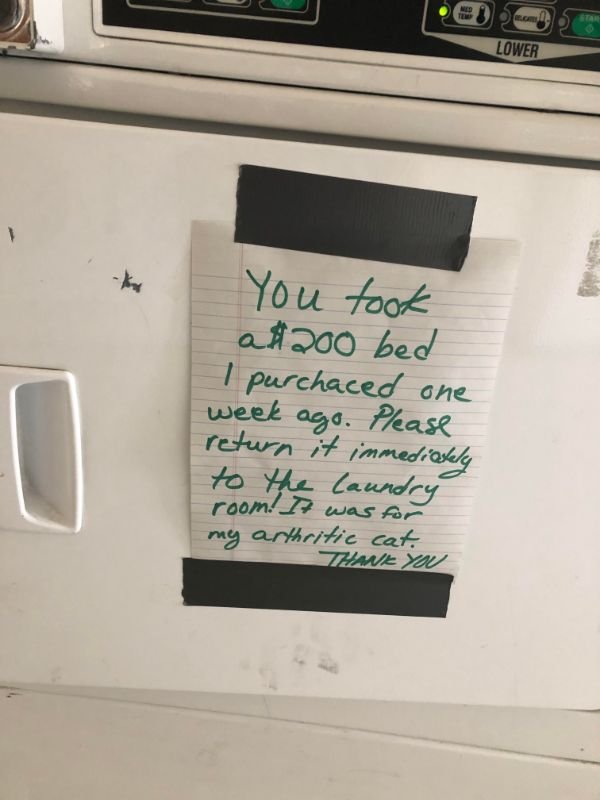 MED
TEMP
DELICATES
START
LOWER
You took
a $200 bed
I purchaced one
week ago. Please
return it immediately
to the laundry
room! It was for
my arthritic cat.
THANK YOU